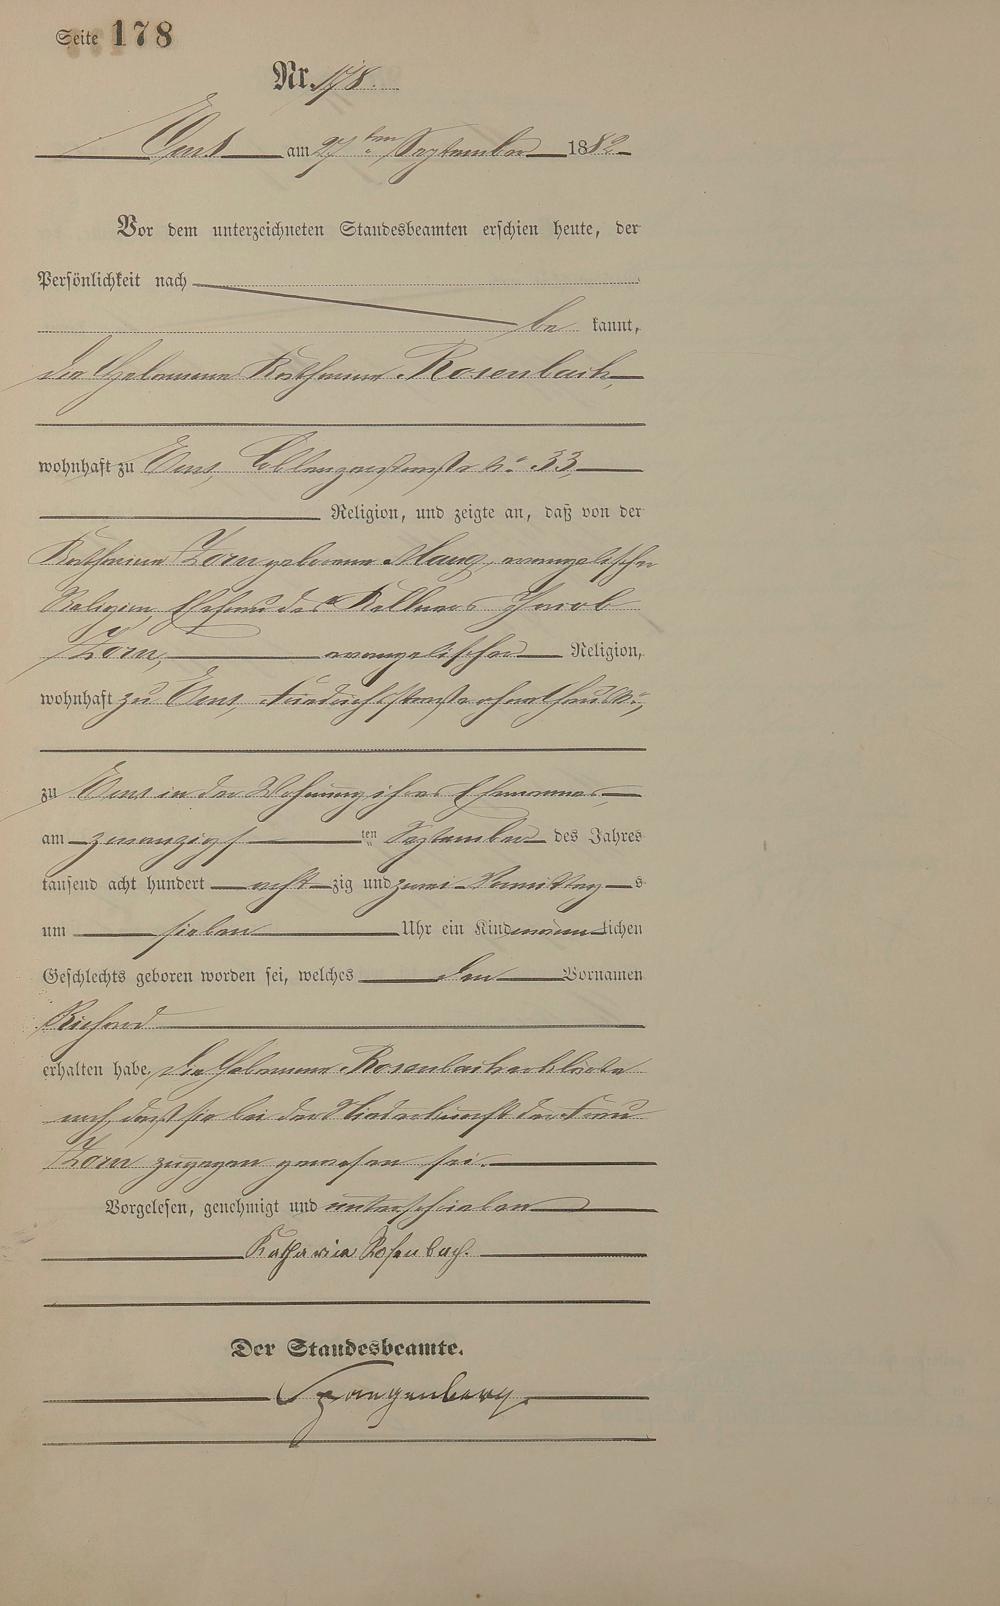 Seite 178
Nr. 178.
Ems am 27ten September 1882
Vor dem unterzeichneten Standesbeamten erschien heute, der
Persönlichkeit nach
be kannt,
die Hebamme Katharina Rosenbach,
wohnhaft zu Ems, Coblenzerstraße No 33,
Religion, und zeigte an, daß von der
Katharina Zorn geborene Maug, evangelischer
Religion, Ehefrau des Kellners Jacob
Zorn, evangelischer Religion,
wohnhaft zu Ems, Friedrichstraße ohne Haus No,
zu Ems in der Wohnung ihres Ehemannes
am zwanzigsten September des Jahres
tausend acht hundert acht zig und zwei Vormittag s
um sieben Uhr ein Kind männ lichen
Geschlechts geboren worden sei, welches den Vornamen
Richard
erhalten habe. Die Hebamme Rosenbach erklärte
noch, daß sie bei der Niederkunft der Frau
Zorn zugegen gewesen sei.
Vorgelesen, genehmigt und unterschrieben
Katharina Rosenbach.
Der Standesbeamte.
Spangenberg.